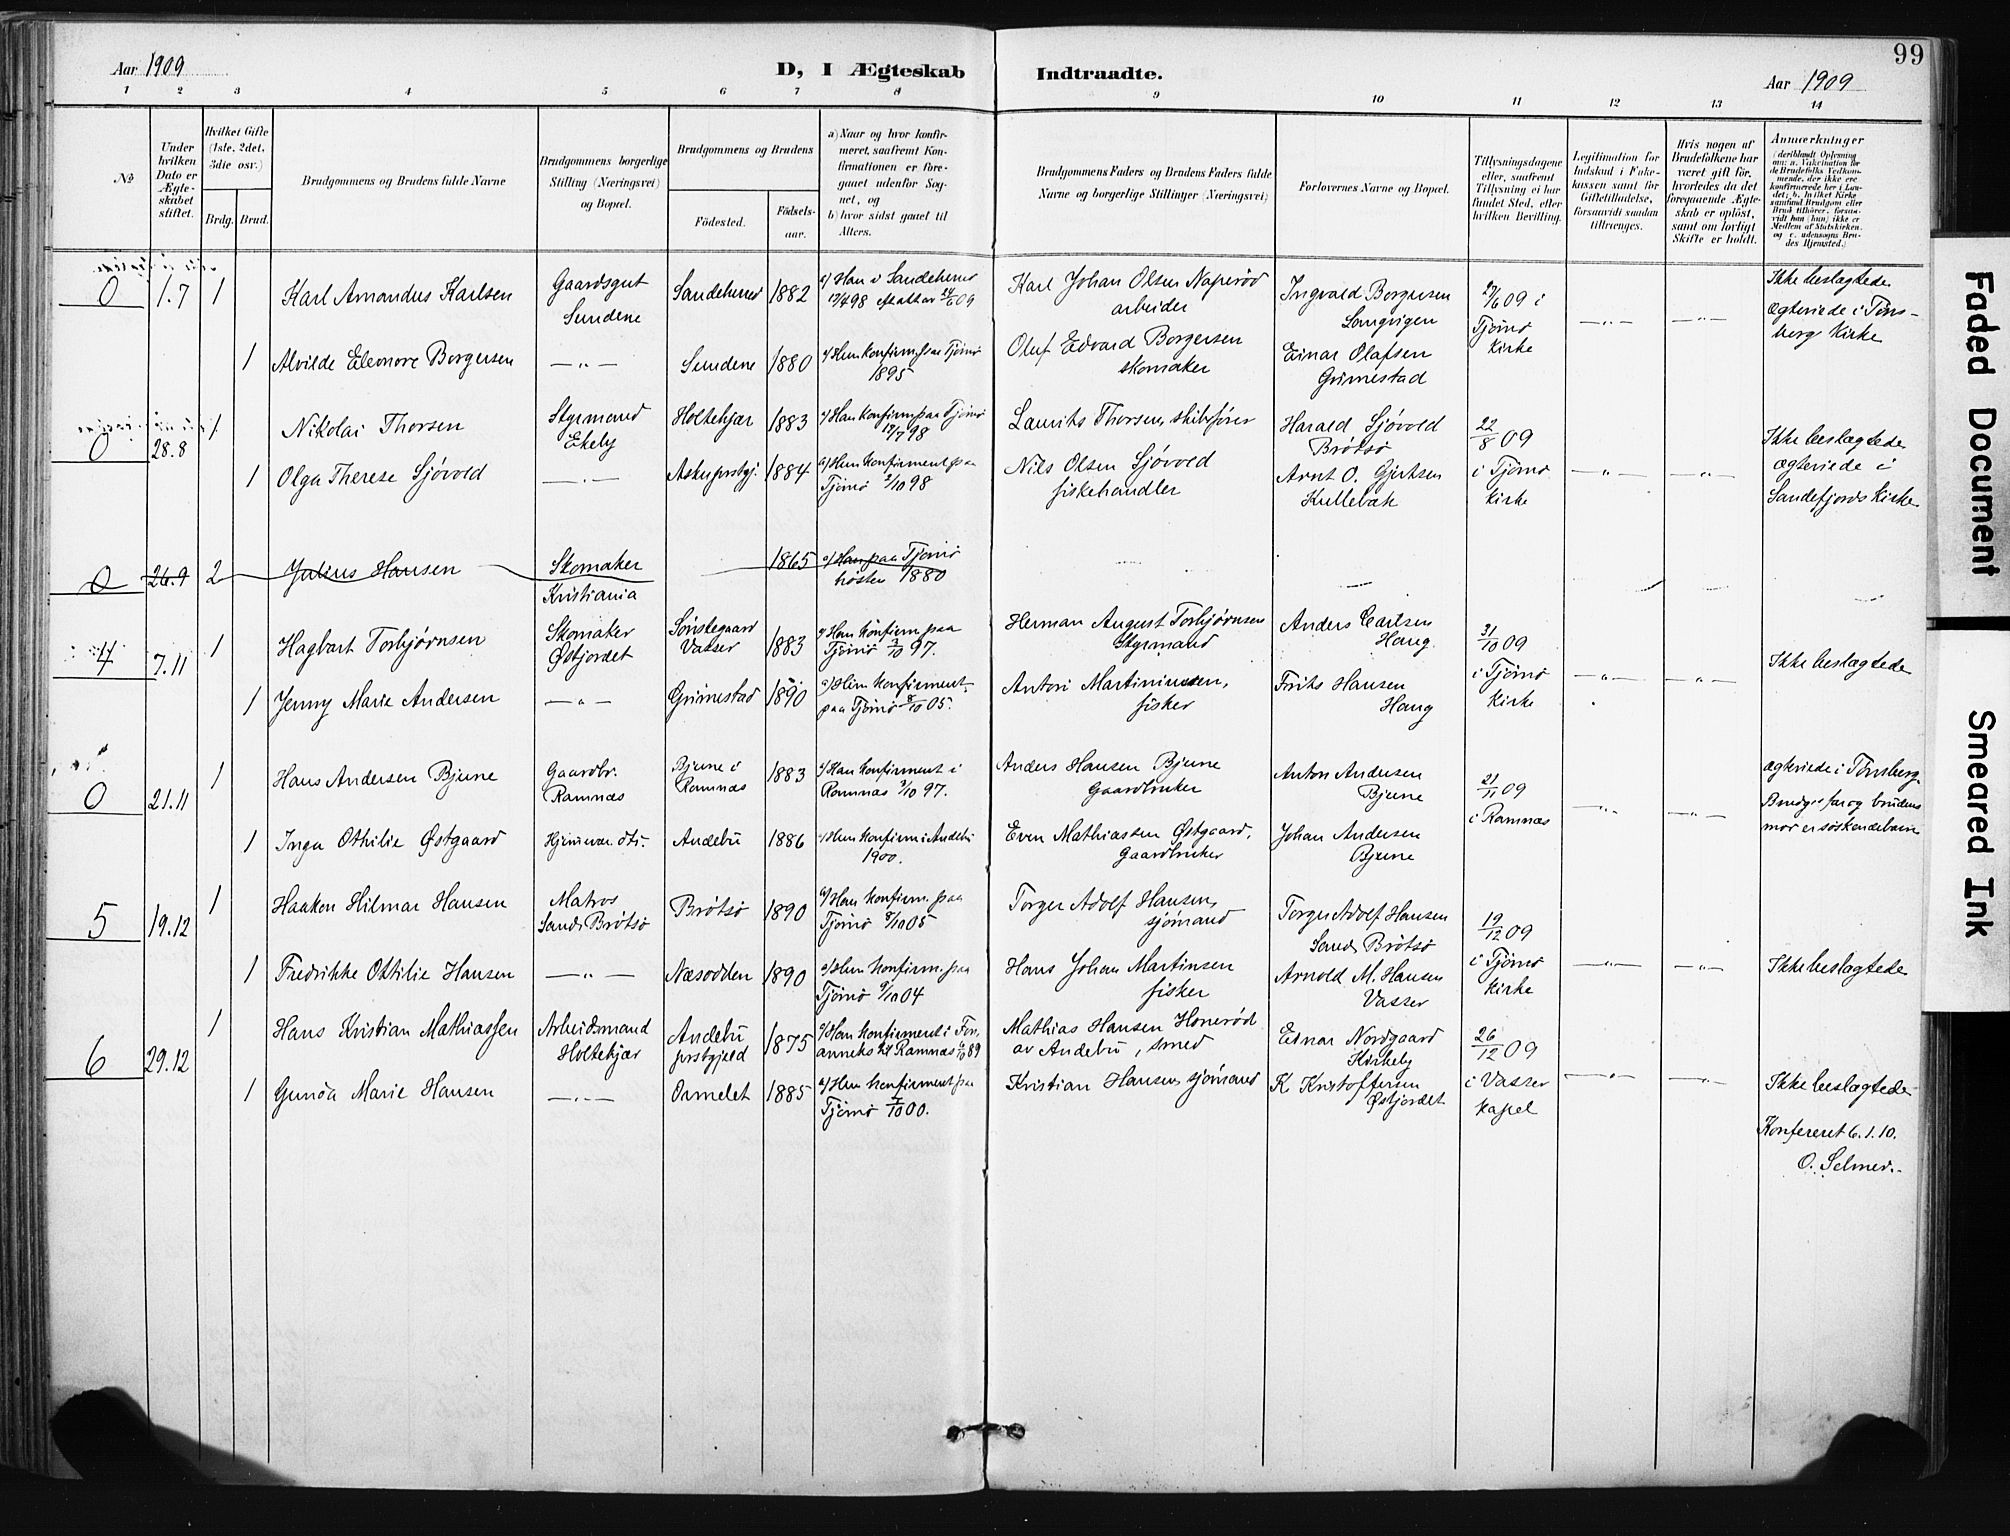 99
Aar 1909
D, I Ægteskab
Indtraadte.
Aar 1909
1 2 3 4 5 6 7 8 9 10 11 12 13 14
No
Under hvilken Dato er Ægteskabet stiftet.
Hvilket Gifte (1ste, 2det, 3die osv.)
Brdg. Brud.
Brudgommens og Brudens fulde Navne
Brudgommens borgerlige Stilling (Næringsvei) og Bopæl.
Brudgommens og Brudens
Fødested.
Fødselsaar.
a) Naar og hvor konfirmeret, saafremt Konfirmationen er foregaaet udenfor Sognet, og
b) hvor sidst gaaet til Alters.
Brudgommens Faders og Brudens Faders fulde Navne og borgerlige Stillinger (Næringsvei)
Forlovernes Navne og Bopæl.
Tillysningsdagene eller, saafremt Tillysning ei har fundet Sted, efter hvilken Bevilling.
Legitimation for Indskud i Enkekassen samt for Giftetilladelse, forsaavidt saadan tiltrænges.
Hvis nogen af Brudefolkene har været gift før, hvorledes da det foregaaende Ægteskab er opløst, samt om lovligt Skifte er holdt.
Anmærkninger
(deriblandt Oplysning om: a. Vakcination for de Brudefolks Vedkommende, der ikke ere konfirmerede her i Landet; b. hvilket Kirkesamfund Brudgom eller Brud tilhører, forsaavidt han (hun) ikke er Medlem af Statskirken, og c. udensogns Brudes Hjemsted.)
0 1.7 1 Karl Amandus Karlsen Gaardsgut Sundene Sandeherred 1882 a) Han i Sandeherred 17/4 98 attest av 24/6 09 Karl Johan Olsen Naperød arbeider Ingvald Borgersen Langvigen 27/6 09 i Tjømø Kirke — " — — " — Ikke beslægtede ægteviede i Tønsberg Kirke
1 Alvilde Eleonore Borgersen — " — Sundene 1880 a) Hun konfirm paa Tjømø 1895 Oluf Edvard Borgersen skomaker Einar Olafsen Grimestad
0 28.8 1 Nikolai Thorsen Styrmand Ekely Holtekjær 1883 a) Han konfirm paa Tjømø 17/7 98 Laurits Thorsen, skibsfører Harald Sjøvold Brøtsø 22/8 09 i Tjømø Kirke — " — — " — Ikke beslægtede ægteviede i Sandefjords Kirke
1 Olga Therese Sjøvold — " — Asker prstgj. 1884 a) Hun konfirmert paa Tjømø 2/10 98 Nils Olsen Sjøvold fiskehandler Arnt O. Gjertsen Kullebæk
0 26.9 2 Julius Hansen Skomaker Kristiania 1865 a) Han paa Tjømø høsten 1880
4 7.11 1 Hagbart Torbjørnsen Skomaker Østjordet Sønstegaard Vasser 1883 a) Han konfirm paa Tjømø 3/10 97. Herman August Torbjørnsen Styrmand Anders Carlsen Haug 31/10 09 i Tjømø Kirke — " — — " — Ikke beslægtede
1 Jenny Marie Andersen — " — Grimestad 1890 a) Hun konfirment paa Tjømø 8/10 05. Anton Martiniussen, fisker Frits Hansen Haug
0 21.11 1 Hans Andersen Bjune Gaardbr. Ramnæs Bjune i Ramnæs 1883 a) Han konfirment i Ramnæs 3/10 97. Anders Hansen Bjune Gaardbruker Anton Andersen Bjune 21/11 09 i Ramnæs — " — — " — ægteviede i Tønsberg Brudgs far og brudens mor er søskendebarn
1 Inga Othilie Østgaard Hjemmev. dtr. Andebu 1886 a) Hun konfirm i Andebu 1900. Even Mathiassen Østgaard, Gaardbruker Johan Andersen Bjune
5 19.12 1 Haakon Hilmar Hansen Matros Sand, Brøtsø Brøtsø 1890 a) Han konfirm. paa Tjømø 8/10 05 Torger Adolf Hansen, sjømand Torger Adolf Hansen Sand, Brøtsø 19/12 09 i Tjømø Kirke — " — — " — Ikke beslægtede
1 Fredrikke Othilie Hansen — " — Næsodden 1890 a) Hun konfirm. paa Tjømø 9/10 04 Hans Johan Martinsen fisker Arnold M. Hansen Vasser
6 29.12 1 Hans Kristian Mathiassen Arbeidsmand Holtekjær Andebu prstgjeld 1875 a) Han konfirmeret i Fon, anneks til Ramnæs 6/10 89 Mathias Hansen Honerød av Andebu, smed Einar Nordgaard Kirkely 26/12 09 i Vasser Kapel — " — — " — Ikke beslægtede
1 Gunda Marie Hansen — " — Ormelet 1885 a) Hun konfirment paa Tjømø 7/10 00. Kristian Hansen, sjømand K Kristoffersen Østjordet
Konfereret 6.1.10.
O. Selmer.
Faded Document
Smeared Ink